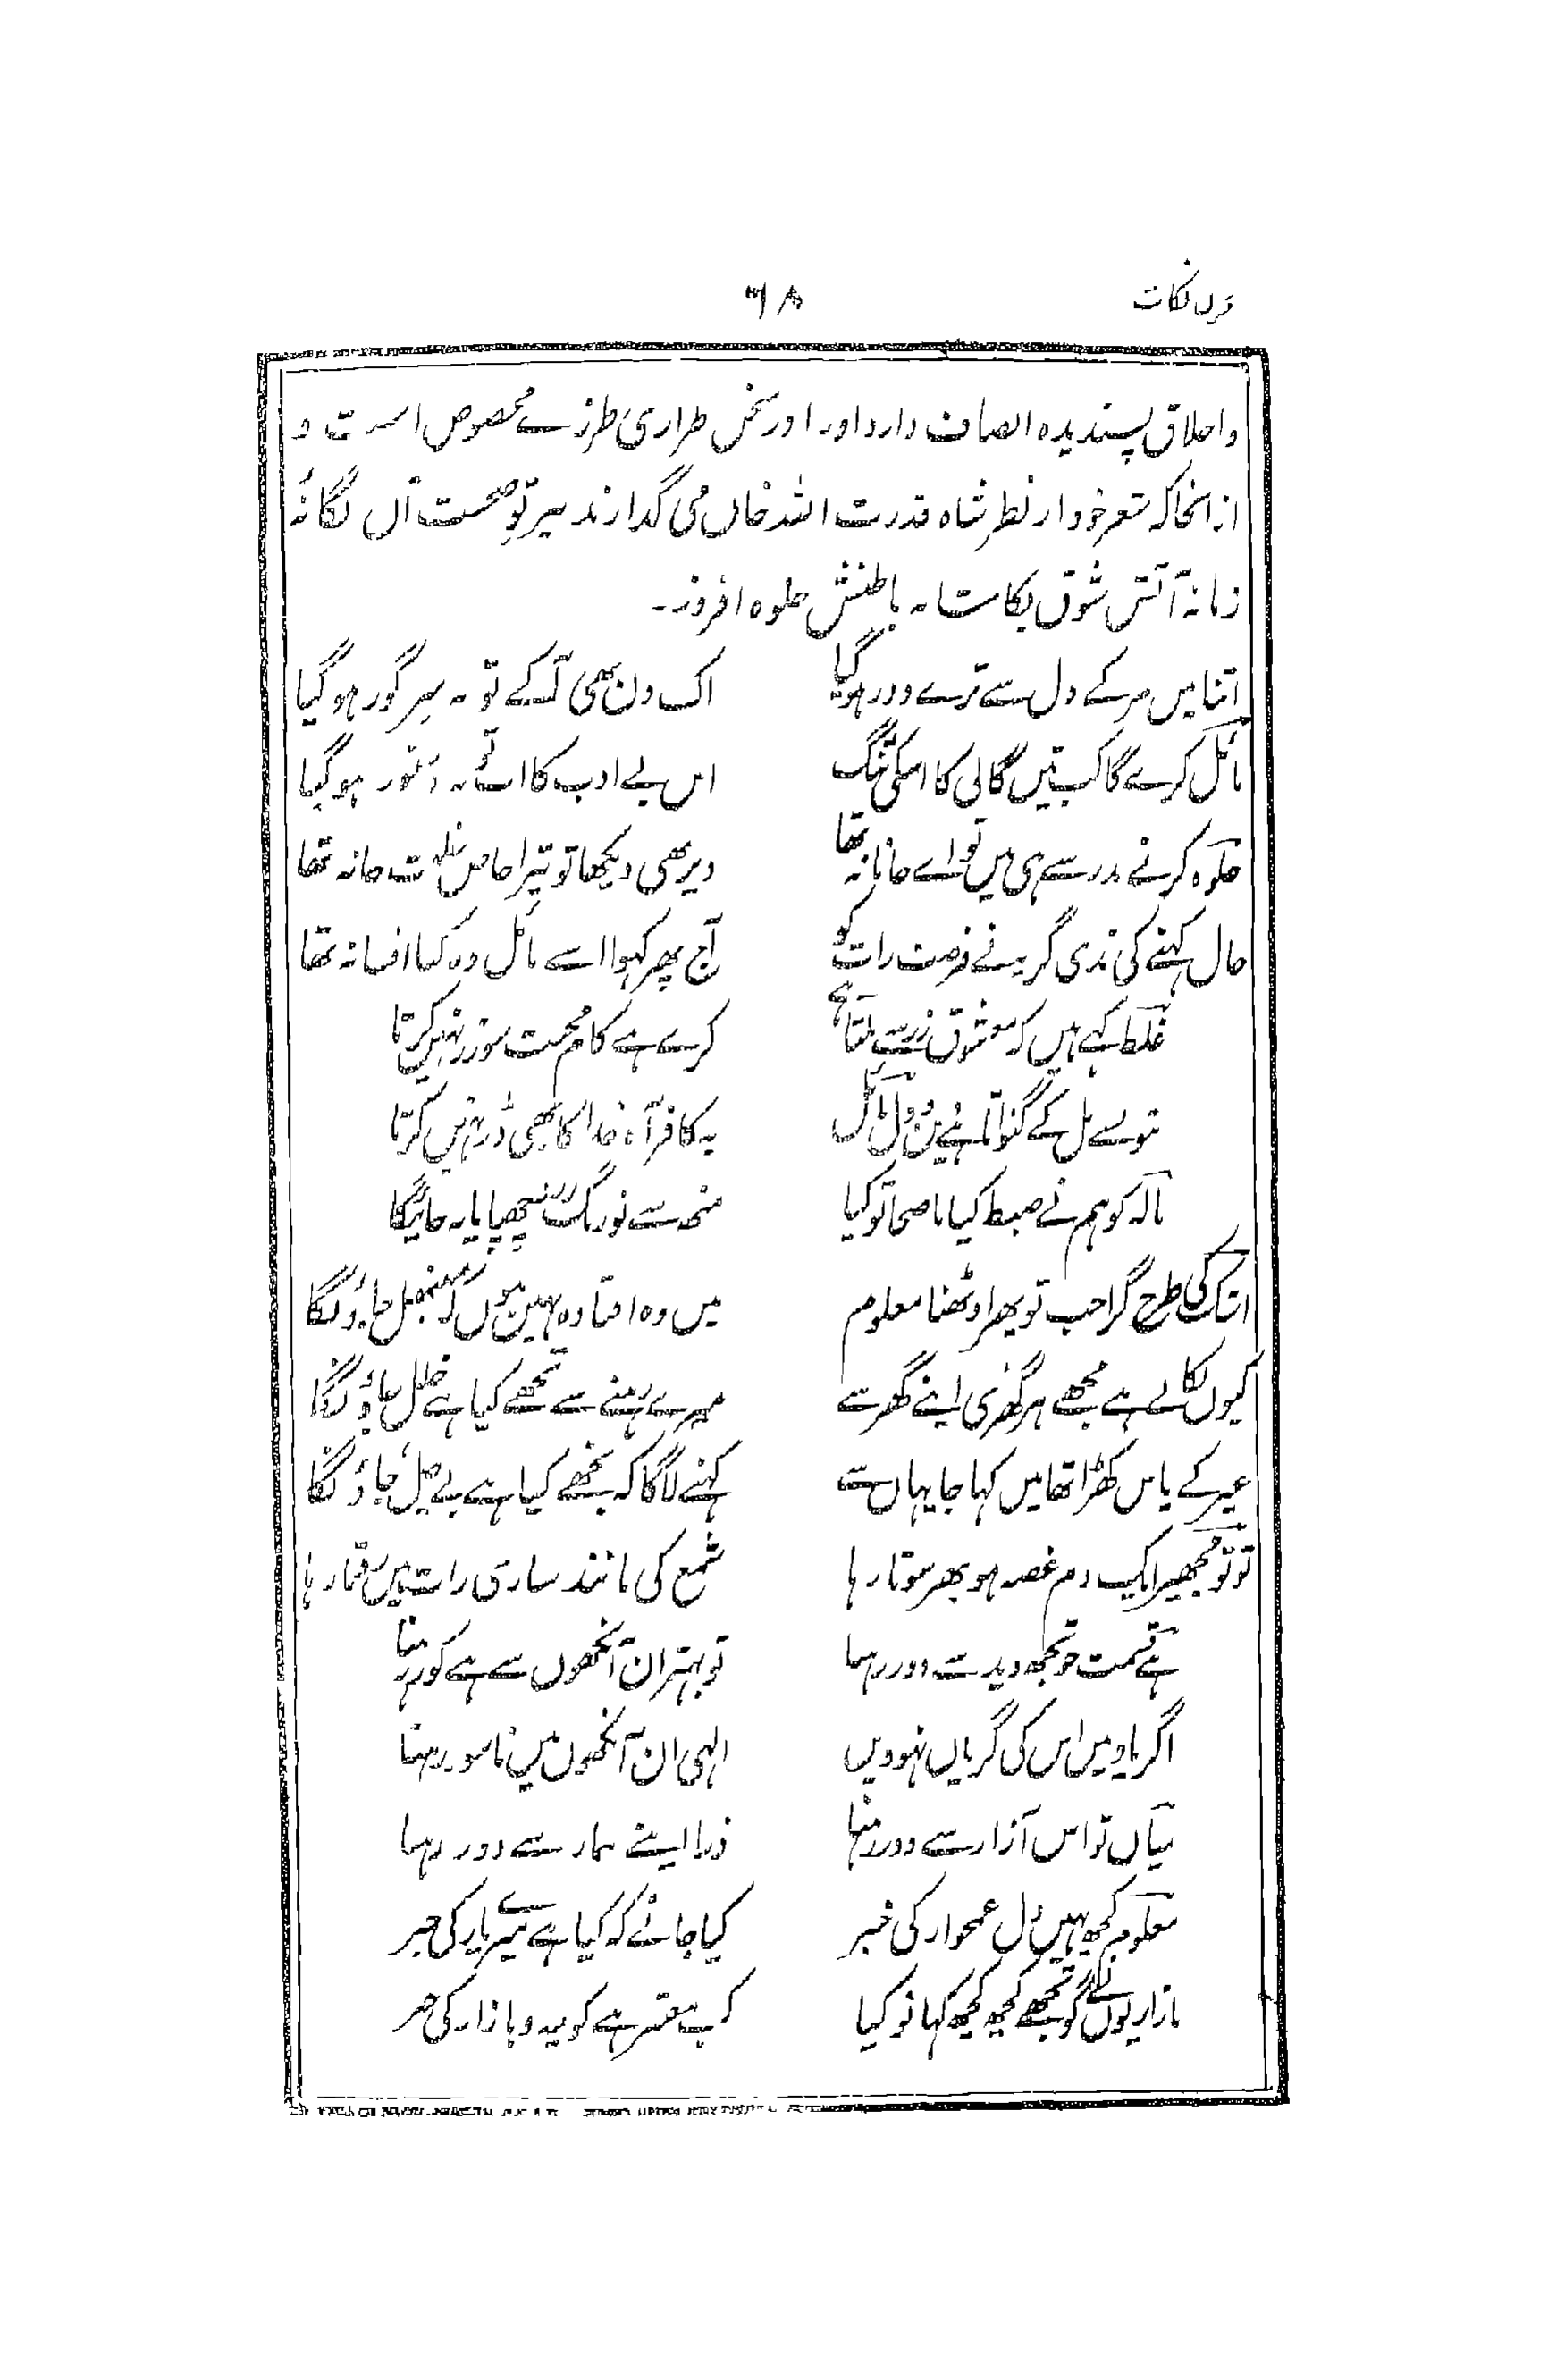 مخزن نکات
۱۶۸
و اخلاق پسندیدہ اتصاف دارد اورا در سخن طرازی طرزے مخصوص است و
از انجا کہ شعر خود از نظر شاہ قدرت اللہ خاں می گذارند پرتوِ صحبت آں یگانۂ
زمانہ آتش شوق بکاشانہ باطنش جلوہ افروز۔
اتنا میں مر کے دل سے ترے دور ہو گیا
اک دن بھی آ کے تو نہ سر گور ہو گیا
مائل کرے گا کب تئیں گالی کا اسکی ننگ
اس بے ادب کا اب تو یہ دستور ہو گیا
جلوہ گر نے مدرسے ہی میں تو اے جانانہ تھا
دیر بھی دیکھا تو تیرا خاص خلوت خانہ تھا
حال کہنے کی ندی گریہ نے فرصت رات کو
آج پھر کہو اسے مائل وہ کیا افسانہ تھا
غلط کہے ہیں کہ معشوق زر سے ملتا ہے
کرے ہے کام محبت سو زر نہیں کرتا
بتوں سے مل کے گنواتا ہے دین و دل مائل
یہ کافر آہ خدا کا بھی ڈر نہیں کرتا
نالہ کو ہم نے ضبط کیا ناصحا تو کیا
منھ سے تو رنگ زرد چھپایا نہ جائیگا
اشک کی طرح گرا جب تو پھر اوٹھنا معلوم
میں وہ افتادہ نہیں ہوں کہ سنبھل جاؤنگا
کیوں نکالے ہے مجھے ہر گھڑی اپنے گھر سے
میرے رہنے سے تجھے کیا ہے خلل جاؤنگا
غیر کے پاس کھڑا تھا میں کہا جا یہاں سے
کہنے لاگا کہ تجھے کیا ہے بے چل جاؤنگا
تو تو مجھپر ایک دم غصہ ہو پھر سوتا رہا
شمع کی مانند ساری رات میں روتا رہا
ہے قسمت جو تجھ دید سے دور رہنا
تو بہتر ان آنکھوں سے ہے کور رہنا
اگر یاد میں اس کی گریاں نہوویں
الہی ان آنکھوں میں ناسور رہنا
میاں تو اس آزار سے دور رہنا
ذرا اپنے بیمار سے دور رہنا
معلوم کچھ نہیں دل غمخوار کی خبر
کیا جانئے کہ کیا ہے میرے یار کی خبر
بازاریوں نے گو تجھے کچھ کچھ کہا تو کیا
کب معتبر ہے کوچہ و بازار کی خبر